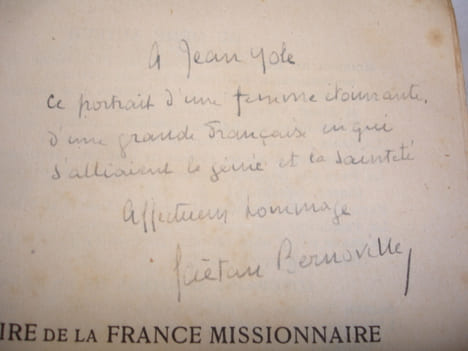 A Jean Yole
ce portrait d'une femme étonnante,
d'une grande française en qui
s'alliaient le génie et la sainteté
Affectueux hommage
Gaëtan Bernoville
IRE DE LA FRANCE MISSIONNAIRE